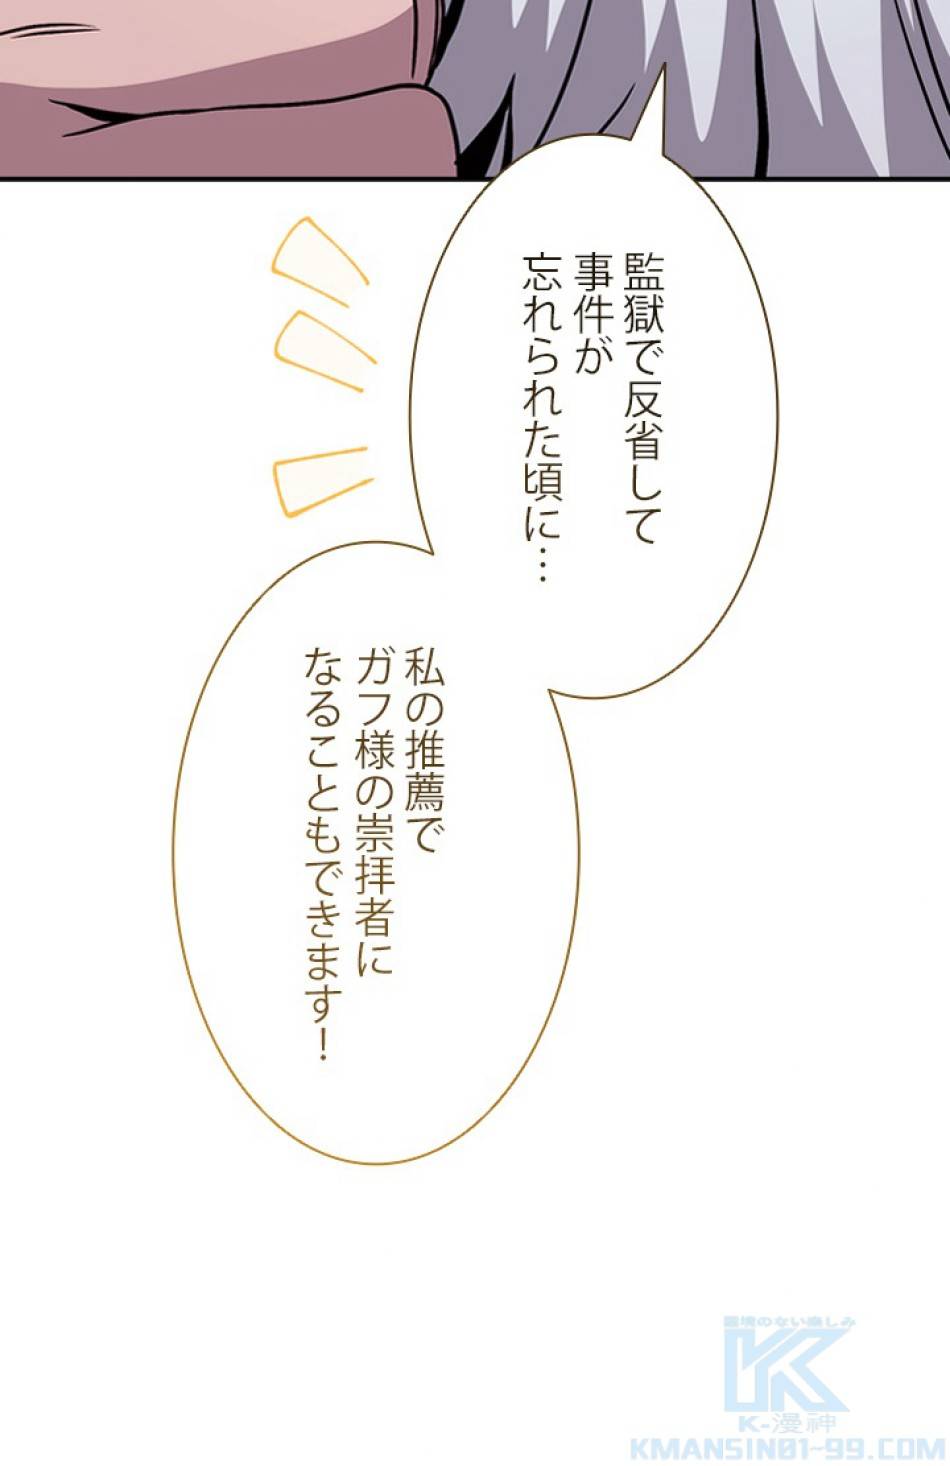 監獄で反省して
事件が
忘れられた頃に…
私の推薦で
ガフ様の崇拝者に
なることもできます!
国境のない楽しみ
K-漫神
KMANSIN01-99.COM